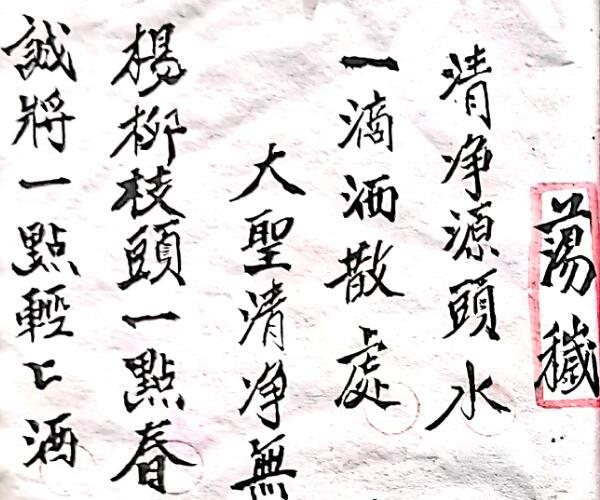 蕩穢
清净源頭水
一滴洒散處
大聖清净無
楊柳枝頭一點春
誠將一點輕〻洒